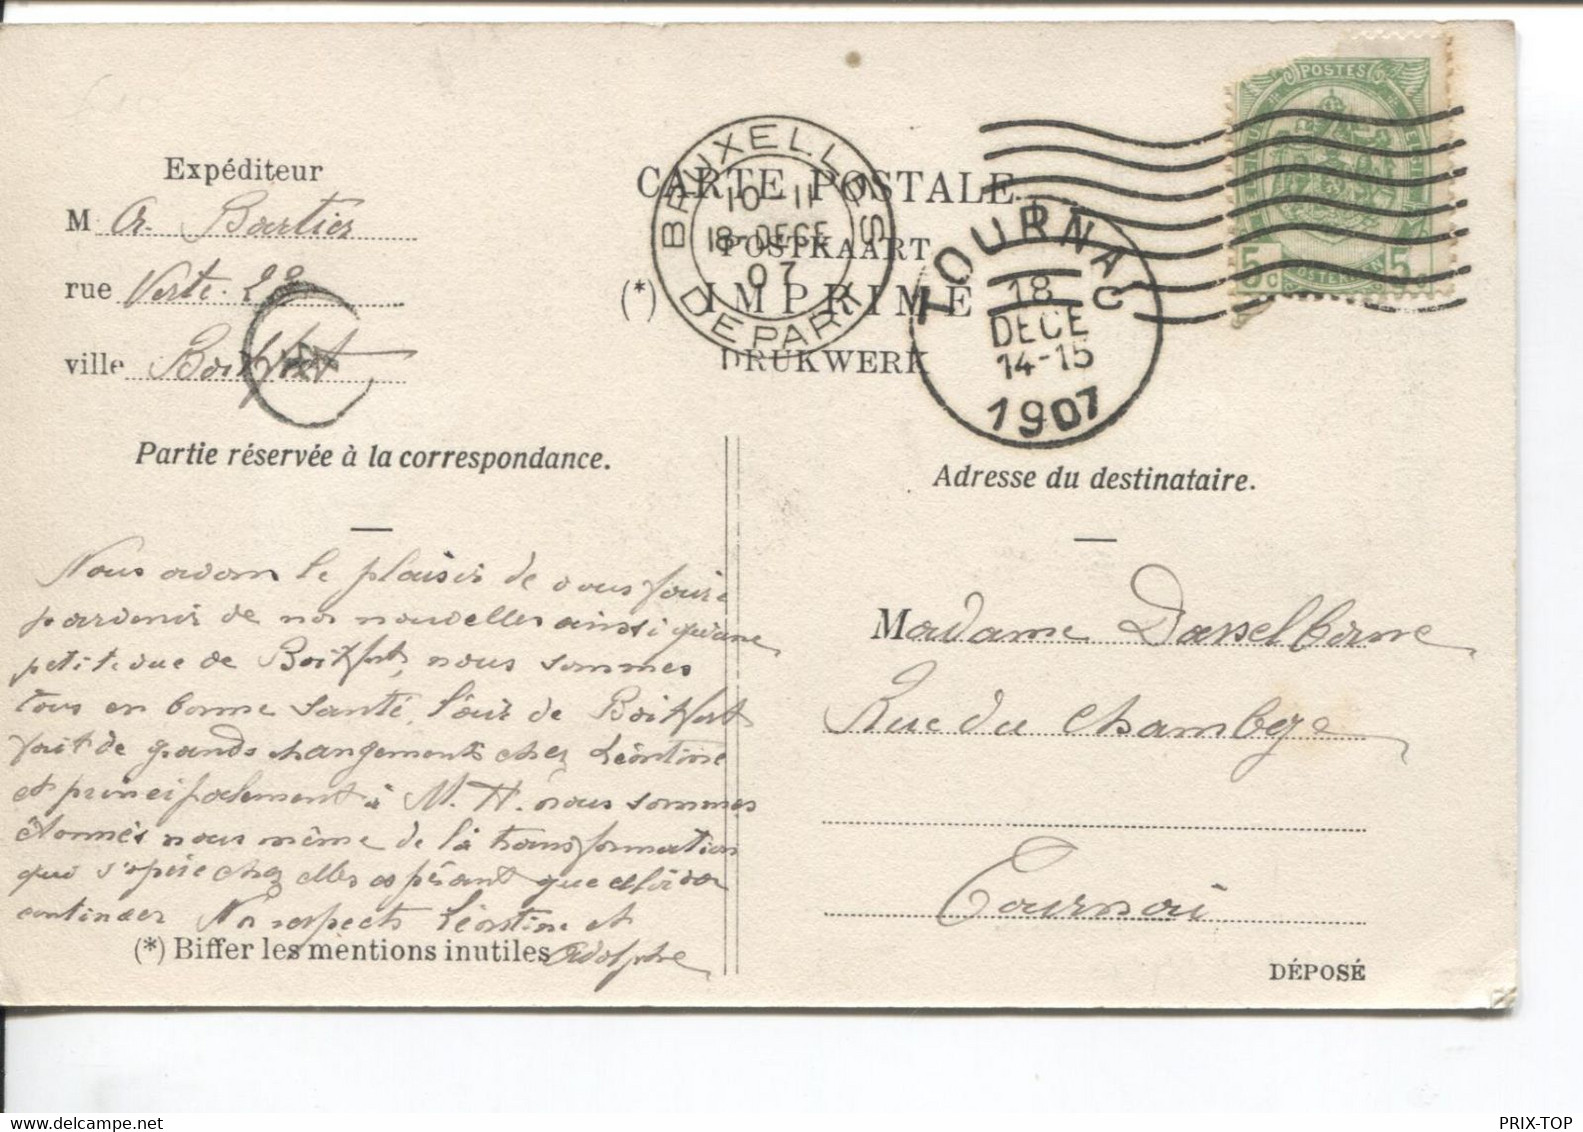 Expéditeur
M A. Bartier
rue Verte 22
ville Boitsfort
Partie réservée à la correspondance.
Nous avons le plaisir de vous faire
parvenir de nos nouvelles ainsi qu'une
petite vue de Boitsfort, nous sommes
tous en bonne santé, l'air de Boitsfort
fait de grands changements chez Léontine
et principalement à M. H. nous sommes
étonnés nous même de la transformation
qui s'opère chez elles espérant que cela va
continuer Nos respects Léontine et
Adolphe
(*) Biffer les mentions inutiles
CARTE POSTALE
POSTKAART
(*) IMPRIMÉ
DRUKWERK
BRUXELLES
10-11
18-DECE
07
DEPART
TOURNAI
18 C
DECE
14-15
1907
POSTES
5c 5c
Adresse du destinataire.
Madame Dasselborne
Rue du Chambge
Tournai
DÉPOSÉ
PRIX-TOP